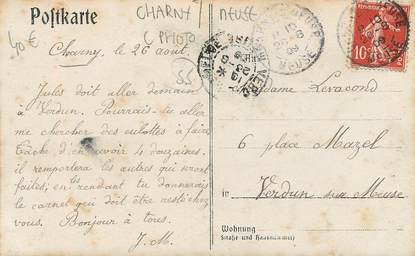 Postkarte
CHARNY
MEUSE
40€
(PHOTO)
55
Charny, le 26 août.
Jules doit aller demain
à Verdun. Pourrais-tu aller
me chercher des culottes à faire
tâche d'en avoir 4 douzaines.
il remportera les autres qui seront
faites; en les rendant tu donnerais
le carnet qui doit être resté chez
vous. Bonjour à tous.
J. M.
Madame Levacond
6 place Mazel
in Verdun sur Meuse
Wohnung
(Straße und Hausnummer)
10
MEUSE